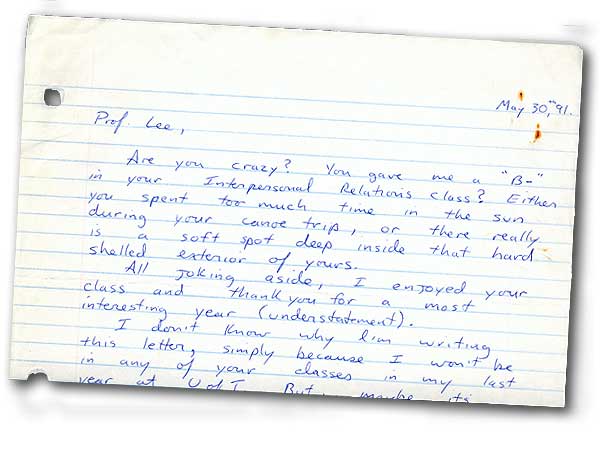 May 30,'91.
Prof. Lee,
Are you crazy? You gave me a "B-"
in your Interpersonal Relations class? Either
you spent too much time in the sun
during your canoe trip, or there really
is a soft spot deep inside that hard
shelled exterior of yours.
All joking aside, I enjoyed your
class and thank you for a most
interesting year (understatement).
I don't know why I'm writing
this letter, simply because I won't be
in any of your classes in my last
year at U of T. But, maybe its